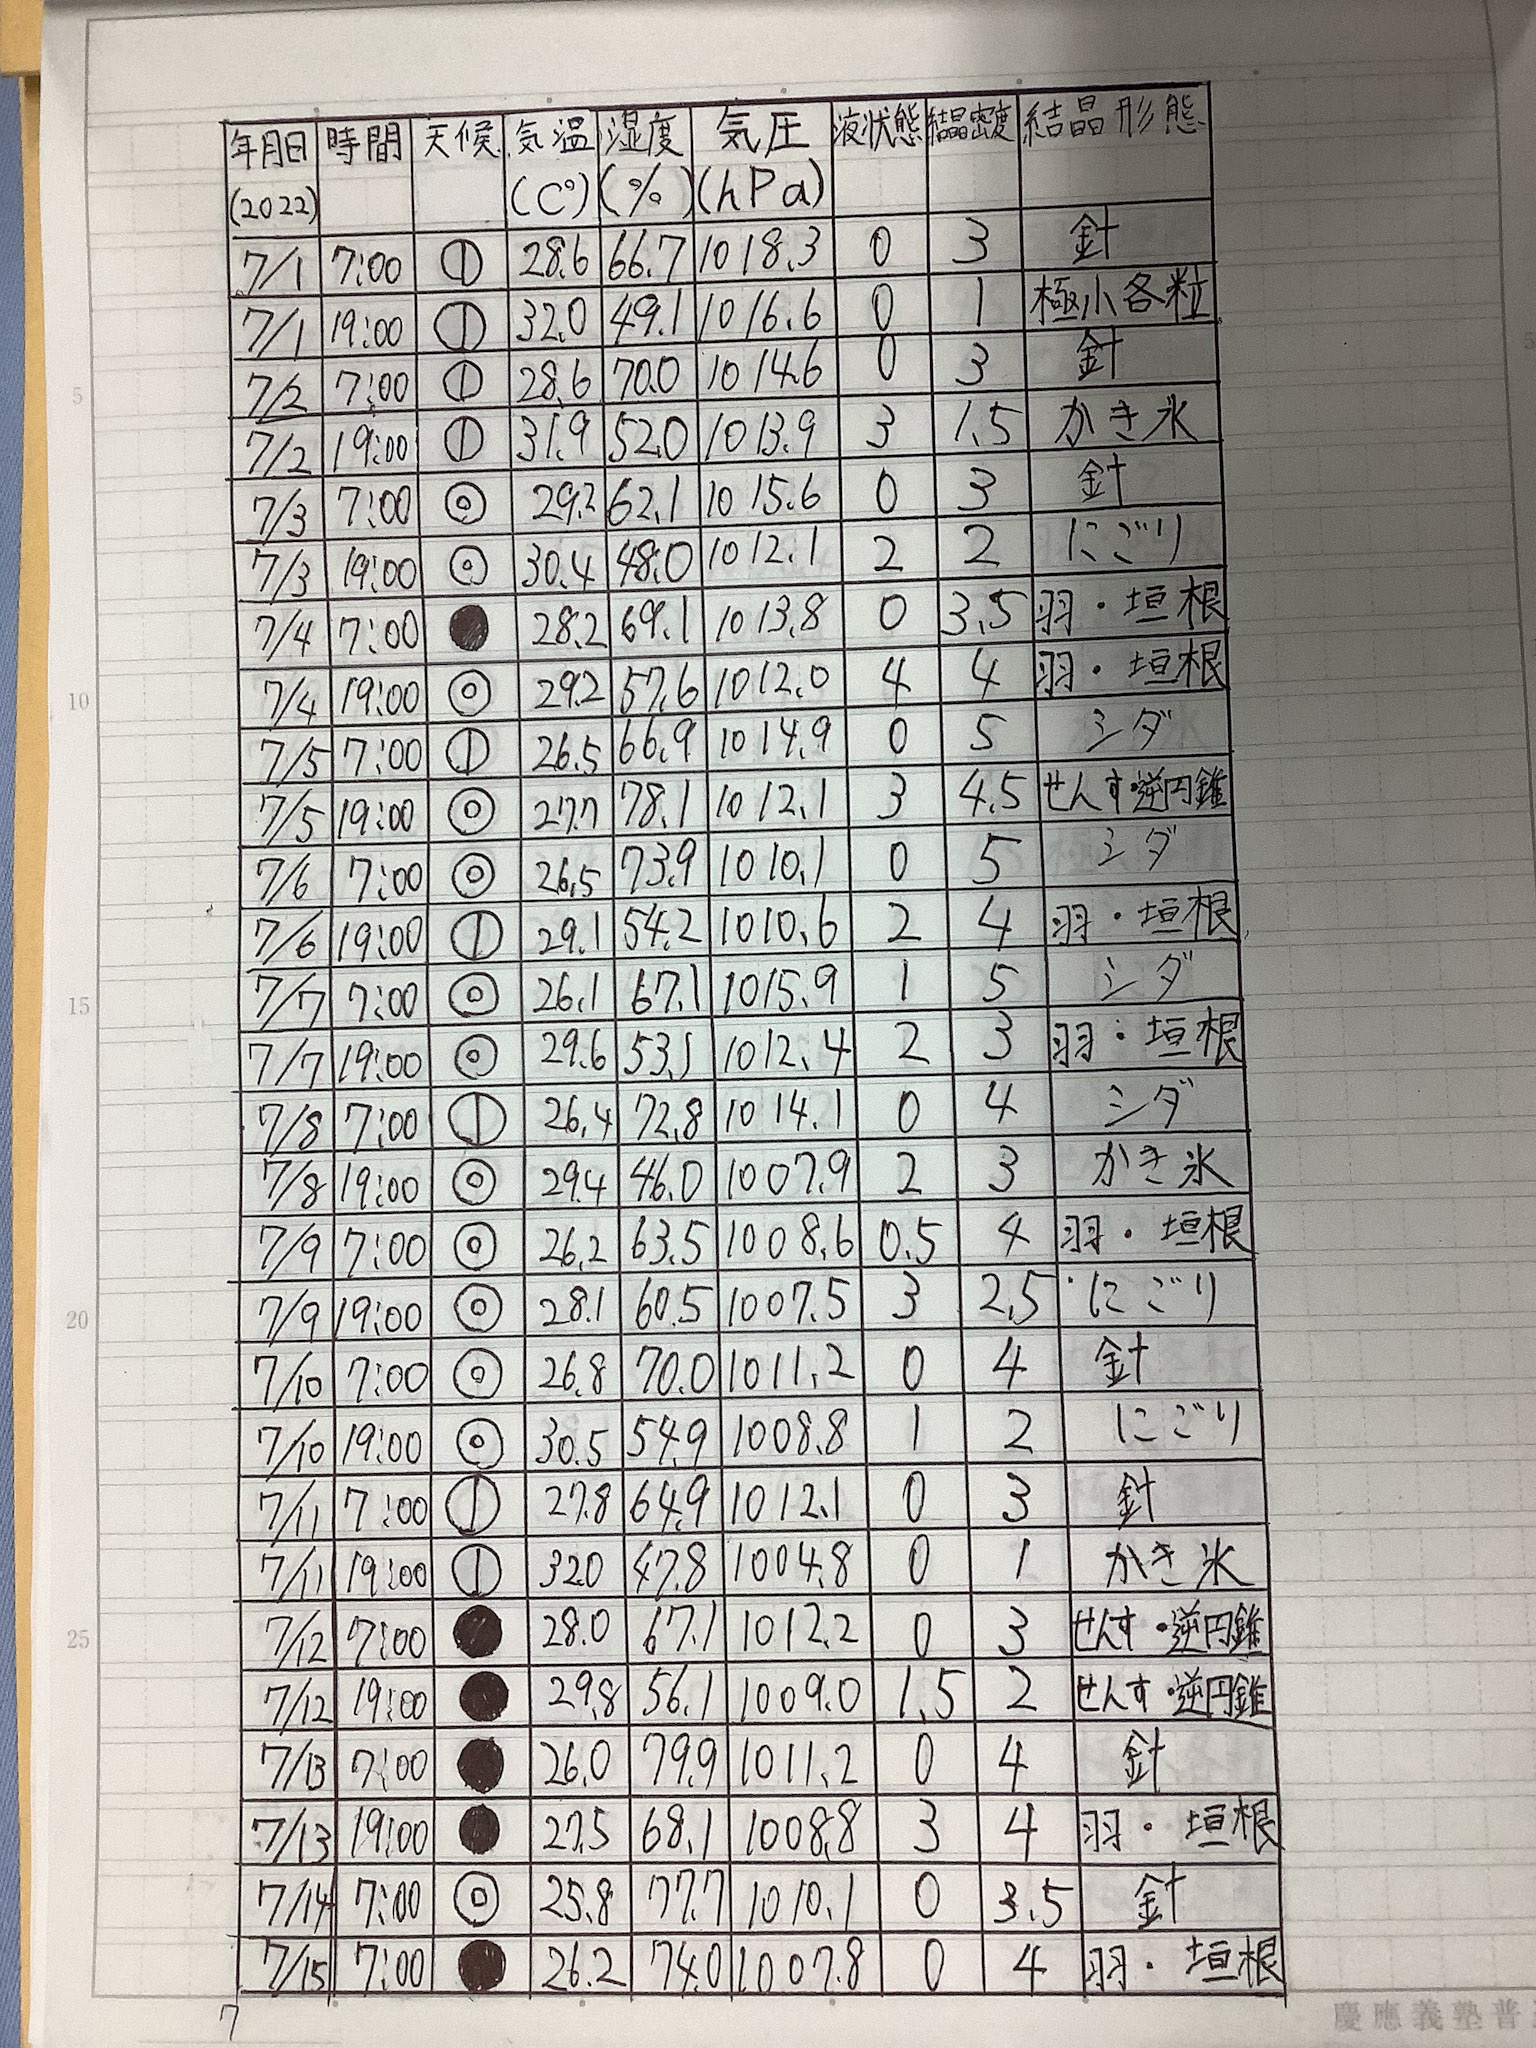 年月日 時間 天候 気温 湿度 気圧 液状態 結晶密度 結晶形態
(2022) (C°) (%) (hPa)
7/1 7:00 ⦶ 28.6 66.7 1018.3 0 3 針
7/1 19:00 ⦶ 32.0 49.1 1016.6 0 1 極小各粒
7/2 7:00 ⦶ 28.6 70.0 1014.6 0 3 針
7/2 19:00 ⦶ 31.9 52.0 1013.9 3 1.5 かき氷
7/3 7:00 ◎ 29.2 62.1 1015.6 0 3 針
7/3 19:00 ◎ 30.4 48.0 1012.1 2 2 にごり
7/4 7:00 ● 28.2 69.1 1013.8 0 3.5 羽・垣根
7/4 19:00 ◎ 29.2 57.6 1012.0 4 4 羽・垣根
7/5 7:00 ⦶ 26.5 66.9 1014.9 0 5 シダ
7/5 19:00 ◎ 27.7 78.1 1012.1 3 4.5 せんす・逆円錐
7/6 7:00 ◎ 26.5 73.9 1010.1 0 5 シダ
7/6 19:00 ⦶ 29.1 54.2 1010.6 2 4 羽・垣根
7/7 7:00 ◎ 26.1 67.1 1015.9 1 5 シダ
7/7 19:00 ◎ 29.6 53.1 1012.4 2 3 羽・垣根
7/8 7:00 ⦶ 26.4 72.8 1014.1 0 4 シダ
7/8 19:00 ◎ 29.4 46.0 1007.9 2 3 かき氷
7/9 7:00 ◎ 26.2 63.5 1008.6 0.5 4 羽・垣根
7/9 19:00 ◎ 28.1 60.5 1007.5 3 2.5 にごり
7/10 7:00 ◎ 26.8 70.0 1011.2 0 4 針
7/10 19:00 ◎ 30.5 54.9 1008.8 1 2 にごり
7/11 7:00 ⦶ 27.8 64.9 1012.1 0 3 針
7/11 19:00 ⦶ 32.0 47.8 1004.8 0 1 かき氷
7/12 7:00 ● 28.0 67.1 1012.2 0 3 せんす・逆円錐
7/12 19:00 ● 29.8 56.1 1009.0 1.5 2 せんす・逆円錐
7/13 7:00 ● 26.0 79.9 1011.2 0 4 針
7/13 19:00 ● 27.5 68.1 1008.8 3 4 羽・垣根
7/14 7:00 ◎ 25.8 77.7 1010.1 0 3.5 針
7/15 7:00 ● 26.2 74.0 1007.8 0 4 羽・垣根
7
5
10
15
20
25
慶應義塾普